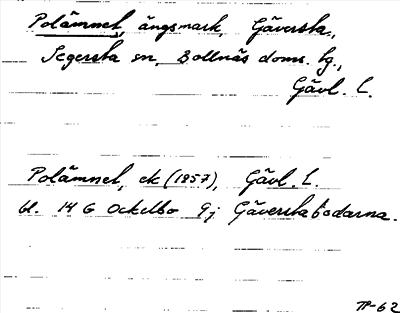 Polämnet, ängsmark, Gäversta,
Segersta sn, Bollnäs doms. hg.,
Gävl. L.
Polämnet, ek (1957), Gävl. L.
bl. 14 G Ockelbo 9j Gäversta bodarna.
TP-62